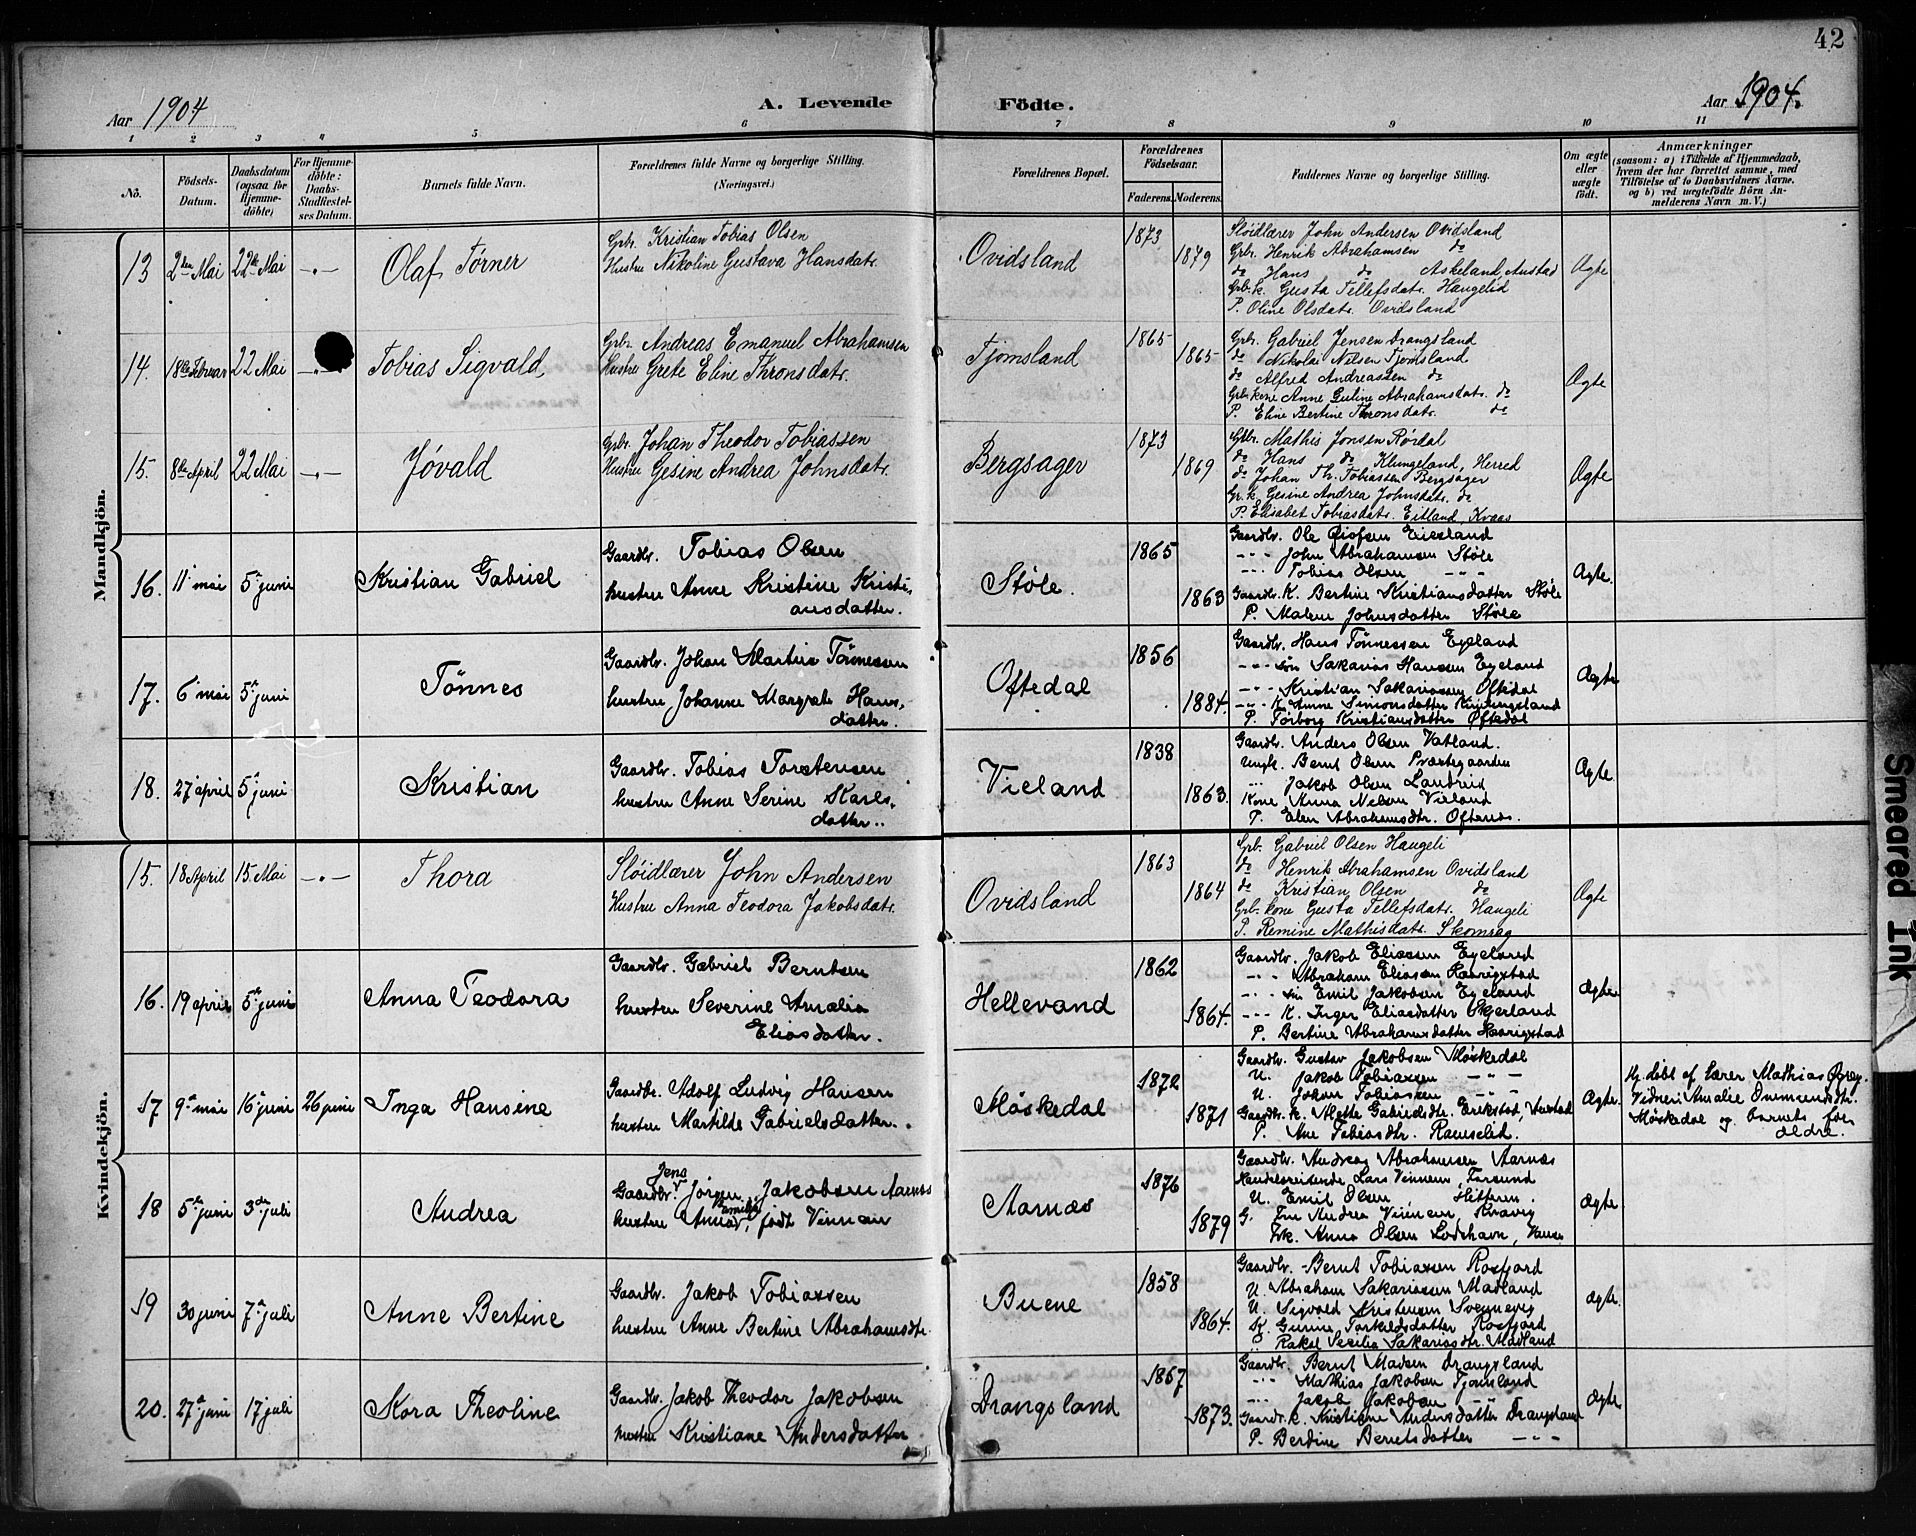 42
Aar 1904
A. Levende Födte.
Aar 1904.
1 2 3 4 5 6 7 8 9 10 11
No.
Födsels-Datum.
Daabsdatum (ogsaa for Hjemmedöbte)
For Hjemmedöbte: Daabs-Stadfæstelses Datum.
Barnets fulde Navn.
Forældrenes fulde Navne og borgerlige Stilling.
(Næringsvei.)
Forældrenes Bopæl.
Forældrenes Födselsaar.
Faderens. Moderens.
Faddernes Navne og borgerlige Stilling.
Om ægte eller uægte födt.
Anmærkninger
(saasom: a) i Tilfælde af Hjemmedaab,
hvem der har forrettet samme, med
Tilföielse af to Daabsvidners Navne.
og b) ved uægtefödte Börn An-
melderens Navn m. V.)
Mandkjön.
13 2den Mai 22de Mai -"- Olaf Tørner
Gbr. Kristian Tobias Olsen
Hustru Nikoline Gustava Hansdatr.
Ovidsland 1873 1879
Sløidlærer John Andersen Ovidsland
Gbr. Henrik Abrahamsen do
do Hans do Askeland, Austad
Gbr.k. Gusta Tellefsdatr. Haugelid
P. Oline Olsdatr. Ovidsland
Ægte
14. 18de Februar 22 Mai Tobias Sigvald
Gbr. Andreas Emanuel Abrahamsen
Hustru Grete Eline Thronsdatr.
Tjomsland 1865 1865
Gbr. Gabriel Jensen Drangsland
do Nikolai Nilsen Tjomsland
do Alfred Andreassen do
Gbr.kone Anne Guline Abrahamsdatr. do
P. Eline Bertine Thronsdatr. do
Ægte
15. 8de April 22 Mai -"- Jóvald
Gbr. Johan Theodor Tobiassen
Hustru Gesine Andrea Johnsdatr.
Bergsager 1873 1869
Gbr. Mathis Jonsen Rørdal
do Hans do Klungeland, Herred
do Johan Th. Tobiassen Bergsager
Gr.k. Gesine Andrea Johnsdatr. do
P. Elisabet Tobiasdatr. Eitland, Kvaas
Ægte
16. 11 mai 5 juni Kristian Gabriel
Gaardbr. Tobias Olsen
hustru Anne Kristine Kristi-
ansdatter.
Støle. 1865 1863
Gaardbr. Ole
-"- John Abrahamsen Støle
-"- Tobias Olsen -"-
Gaardbr. K. Bertine Kristiansdatter Støle
P. Malene Johnsdatter Støle
Ægte.
17. 6 mai 5 juni Tönnes
Gaardbr. Johan Martin Tönnessen
hustru Johanne Margrete Hans-
datter.
Oftedal 1856 1884.
Gaardbr. Hans Tönnessen Egeland
-"- søn Sakarias Hansen Egeland
-"- Kristian Sakariassen Oftedal
-"- K. Anne Simonsdatter
P. Torborg Kristiansdatter Oftedal
Ægte
18. 27 april 5 juni Kristian
Gaardbr. Tobias Torstensen
hustru Anne Serine Karls-
datter.
Vieland 1838 1863.
Gaardbr. Anders Olsen Vatland.
Ungk. Bernt Olsen Præstegaarden
" Jakob Olsen Landrud
Kone Anna Nelsen Vieland
P. Elen Abrahamsdtr. Oftenes.
Ægte
Kvindekjön.
15. 18 April 15 Mai -"- Thora
Sløidlærer John Andersen
Hustru Anna Teodora Jakobsdatr.
Ovidsland 1863 1864
Gbr. Gabriel Olsen Haugeli
do Henrik Abrahamsen Ovidsland
do Kristian Olsen do
Gbr.kone Gusta Tellefsdatr. Haugeli
P. Remine Mathisdatr. Skomrag
Ægte
16. 19 april 5 juni Anna Teodora
Gaardbr. Gabriel Berntsen
hustru Severine Amalia
Eliasdatter.
Hellevand 1862 1864.
Gaardbr. Jakob Eliassen Egeland
-"- Abraham Eliassen Haarigstad
-"- søn Emil Jakobsen Egeland
-"- K. Inger Eliasdatter
P. Bertine Abrahamsdatter Haarigstad
ægte
17 9 mai 16 juni 26 juni Inga Hansine
Gaardbr. Adolf Ludvig Hansen
hustru Martilde Gabrielsdatter.
Möskedal 1872 1871
Gaardbr. Gustav Jakobsen Möskedal
U. Jakob Tobiassen -"-
U. Johan Tobiassen -"-
Gaardbr. k. Mette Gabrielsdtr. Erikstad, Austad
P. Ane Tobiasdtr. Rameslid.
Ægte
Hj. döbt af Lærer Mathias
Vidner: Amalie
Möskedal og barnets for-
ældre.
18 5te juni 3die juli Andrea
Jens
Gaardbr. Jörgen Jakobsen Aarnes
hustru Anna, född Vinnan
Aarnæs 1876 1879
Gaardbr. Andreas Abrahamsen Aarnæs
Handelsreisende Lars Vinnem Farsund
U. Emil Olsen, Hitteren.
G. Fru Andrea Vinnem,
Frk. Anna Olsen Lodshavn,
ægte.
19 30 juni 7 juli Anne Bertine
Gaardbr. Jakob Tobiassen
hustru Anne Bertine Abrahamsdtr.
Buene 1858 1864.
Gaardbr. Bernt Tobiassen Rosfjord
U. Abraham Sakariassen Madland
U. Sigvald Kristensen Svennevig
K. Gurine Torkeldsdatter Rosfjord
P. Rakel Secilia Sakariasdtr. Madland
ægte.
20. 27 juni 17 juli Kora Theoline
Gaardbr. Jakob Theodor Jakobsen
hustru Kristiane Andersdatter
Drangsland 1867 1873.
Gaardbr. Bernt Madsen Drangsland
-"- Mathias Jakobsen Tjomsland
-"- Jakob Jakobsen -"-
Gaardbr. k. Kristiane Andersdatter Drangsland
P. Berdine Berntsdatter -"-
ægte
Smeared Ink